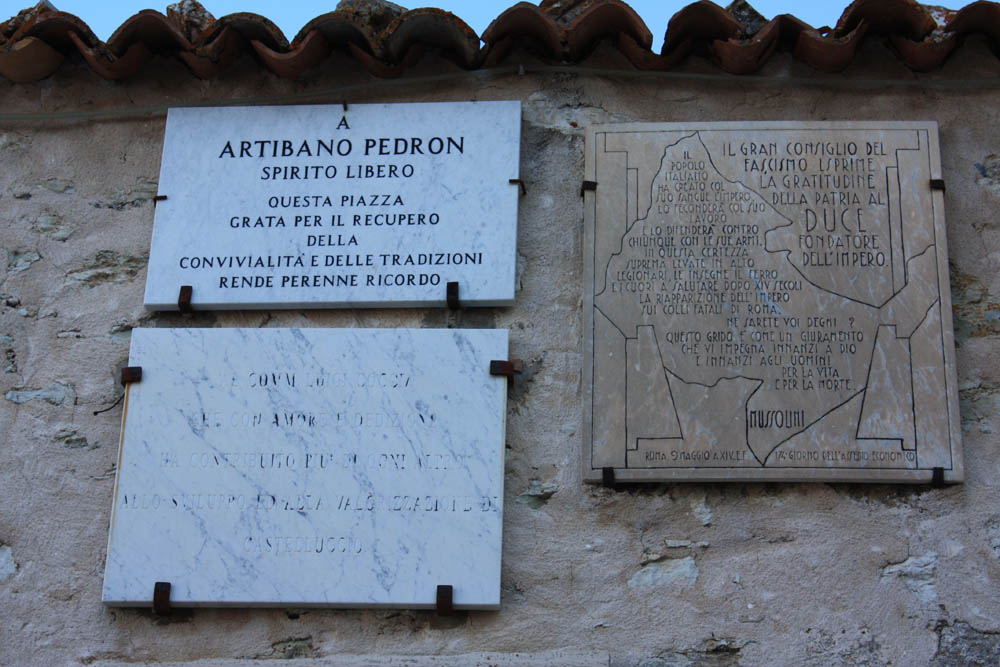 A
ARTIBANO PEDRON
SPIRITO LIBERO
QUESTA PIAZZA
GRATA PER IL RECUPERO
DELLA
CONVIVIALITÀ E DELLE TRADIZIONI
RENDE PERENNE RICORDO
COMM LUIGI
CHE CON AMORE E DEDIZIONE
HA CONTRIBUITO PIÙ DI OGNI ALTRO
ALLO SVILUPPO ED ALLA VALORIZZAZIONE DI
CASTELLUCCIO
IL GRAN CONSIGLIO DEL
FASCISMO ESPRIME
LA GRATITUDINE
DELLA PATRIA AL
DUCE
FONDATORE
DELL'IMPERO.
IL
POPOLO
ITALIANO
HA CREATO COL
SUO SANGUE L'IMPERO.
LO FECONDERÀ COL SUO
LAVORO
E LO DIFENDERÀ CONTRO
CHIUNQUE CON LE SUE ARMI.
IN QUESTA CERTEZZA
SUPREMA, LEVATE IN ALTO
LEGIONARI, LE INSEGNE, IL FERRO
E I CUORI A SALUTARE DOPO XIV SECOLI
LA RIAPPARIZIONE DELL'IMPERO
SUI COLLI FATALI DI ROMA.
NE SARETE VOI DEGNI ?
QUESTO GRIDO È COME UN GIURAMENTO
CHE VI IMPEGNA INNANZI A DIO
E INNANZI AGLI UOMINI
PER LA VITA
E PER LA MORTE.
MUSSOLINI
ROMA, 9 MAGGIO A XIV. E.F. 174° GIORNO DELL'ASSEDIO ECONOMICO